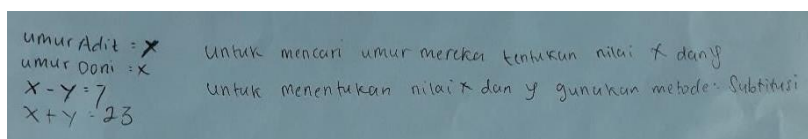 umur Adit : x
umur Doni : x
x - y = 7
x + y = 23
untuk mencari umur mereka tentukan nilai x dan y
untuk menentukan nilai x dan y gunakan metode : Subtitusi